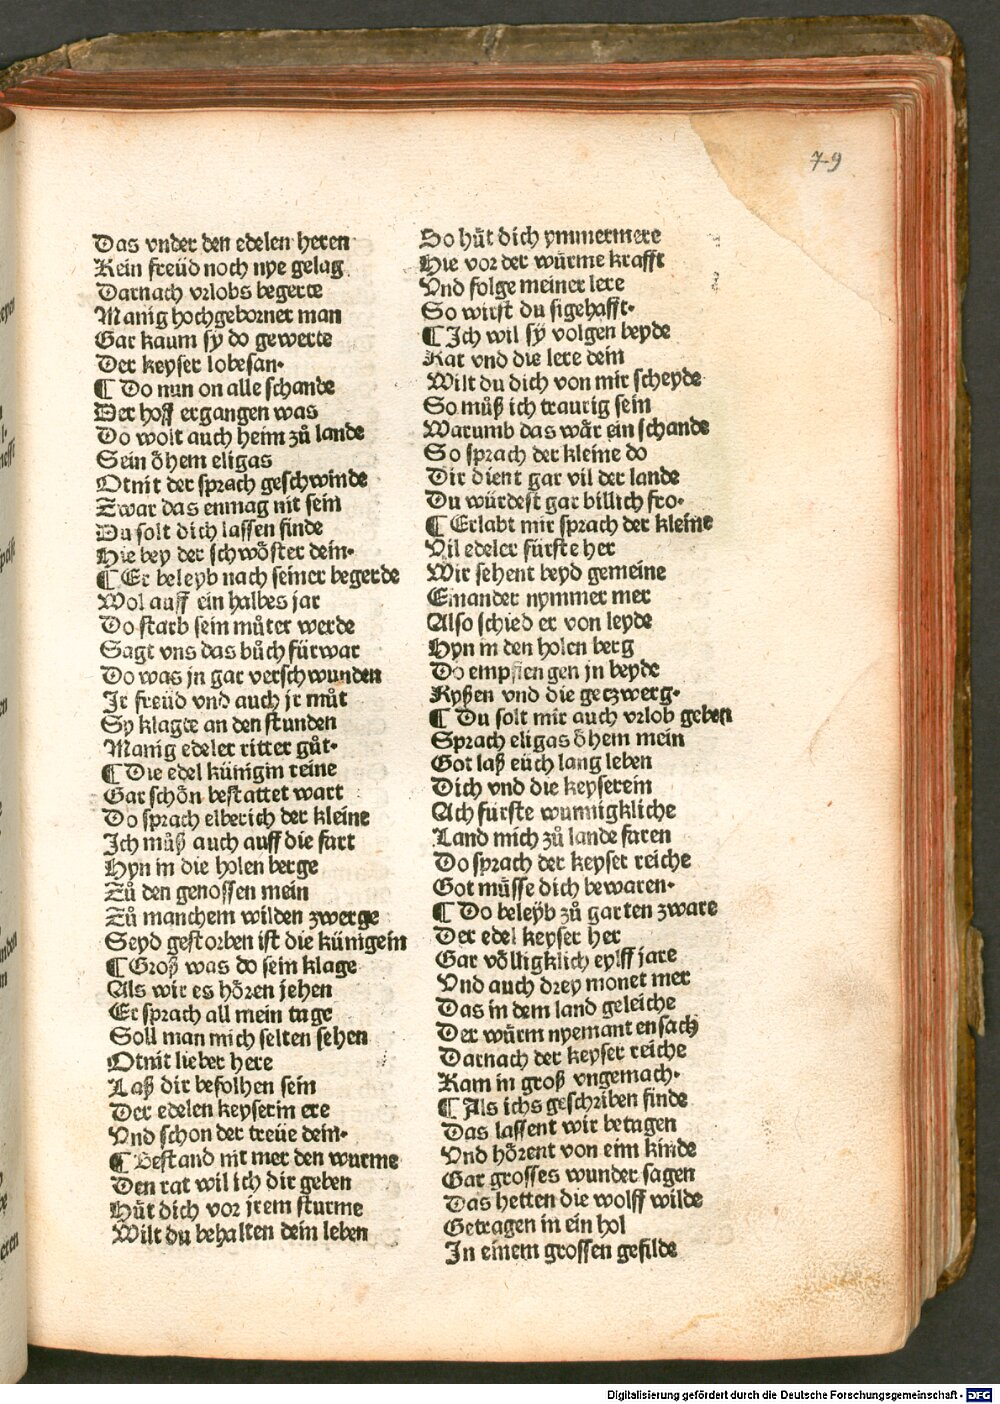 79
Das vnder den edelen heren
Kein freüd noch nye gelag
Darnach vrlobs begerte
Manig hochgeborner man
Gar kaum sy do gewerte
Der keyser lobesan·
¶ Do nun on alle schande
Der hoff ergangen was
Do wolt auch heim zů lande
Sein öhem eligas
Otnit der sprach geschwinde
Zwar das enmag nit sein
Du solt dich lassen finde
Hie bey der schwöster dein·
¶ Er beleyb nach seiner begerde
Wol auff ein halbes jar
Do starb sein můter werde
Sagt vns das bůch fürwar
Do was jn gar verschwunden
Jr freüd vnd auch jr můt
Sy klagte an den stunden
Manig edeler ritter gůt·
¶ Die edel künigin reine
Gar schön bestattet wart
Do sprach elberich der kleine
Jch můß auch auff die fart
Hyn in die holen berge
Zů den genossen mein
Zů manchem wilden zwerge
Seyd gestorben ist die künigein
¶ Groß was do sein klage
Als wir es hören jehen
Er sprach all mein tage
Soll man mich selten sehen
Otnit lieber here
Laß dir befolhen sein
Der edelen keyserin ere
Vnd schon der treüe dein·
¶ Bestand nit mer den wurme
Den rat wil ich dir geben
Hüt dich vor jrem sturme
Wilt du behalten dein leben
So hüt dich ymmermere
Hie vor der würme krafft
Vnd folge meiner lere
So wirst du sigehafft·
¶ Jch wil sÿ volgen beyde
Rat vnd die lere dein
Wilt du dich von mir scheyde
So můß ich traurig sein
Warumb das wär ein schande
So sprach der kleine do
Dir dient gar vil der lande
Du würdest gar billich fro·
¶ Erlabt mir sprach der kleine
Vil edeler fürste her
Wir sehent beyd gemeine
Einander nymmer mer
Also schied er von leyde
Hyn in den holen berg
Do empfiengen jn beyde
Ryßen vnd die geczwerg·
¶ Du solt mir auch vrlob geben
Sprach eligas öhem mein
Got laß eüch lang leben
Dich vnd die keyserein
Ach fürste wunnigkliche
Land mich zů lande faren
Do sprach der keyser reiche
Got müsse dich bewaren·
¶ Do beleÿb zů garten zware
Der edel keyser her
Gar völligklich eylff jare
Vnd auch drey monet mer
Das in dem land geleiche
Der würm nyemant ensach
Darnach der keyser reiche
Kam in groß vngemach·
¶ Als ichs geschriben finde
Das lassent wir betagen
Vnd hörent von eim kinde
Gar grosses wunder sagen
Das hetten die wolff wilde
Getragen in ein hol
Jn einem grossen gefilde
Digitalisierung gefördert durch die Deutsche Forschungsgemeinschaft - DFG